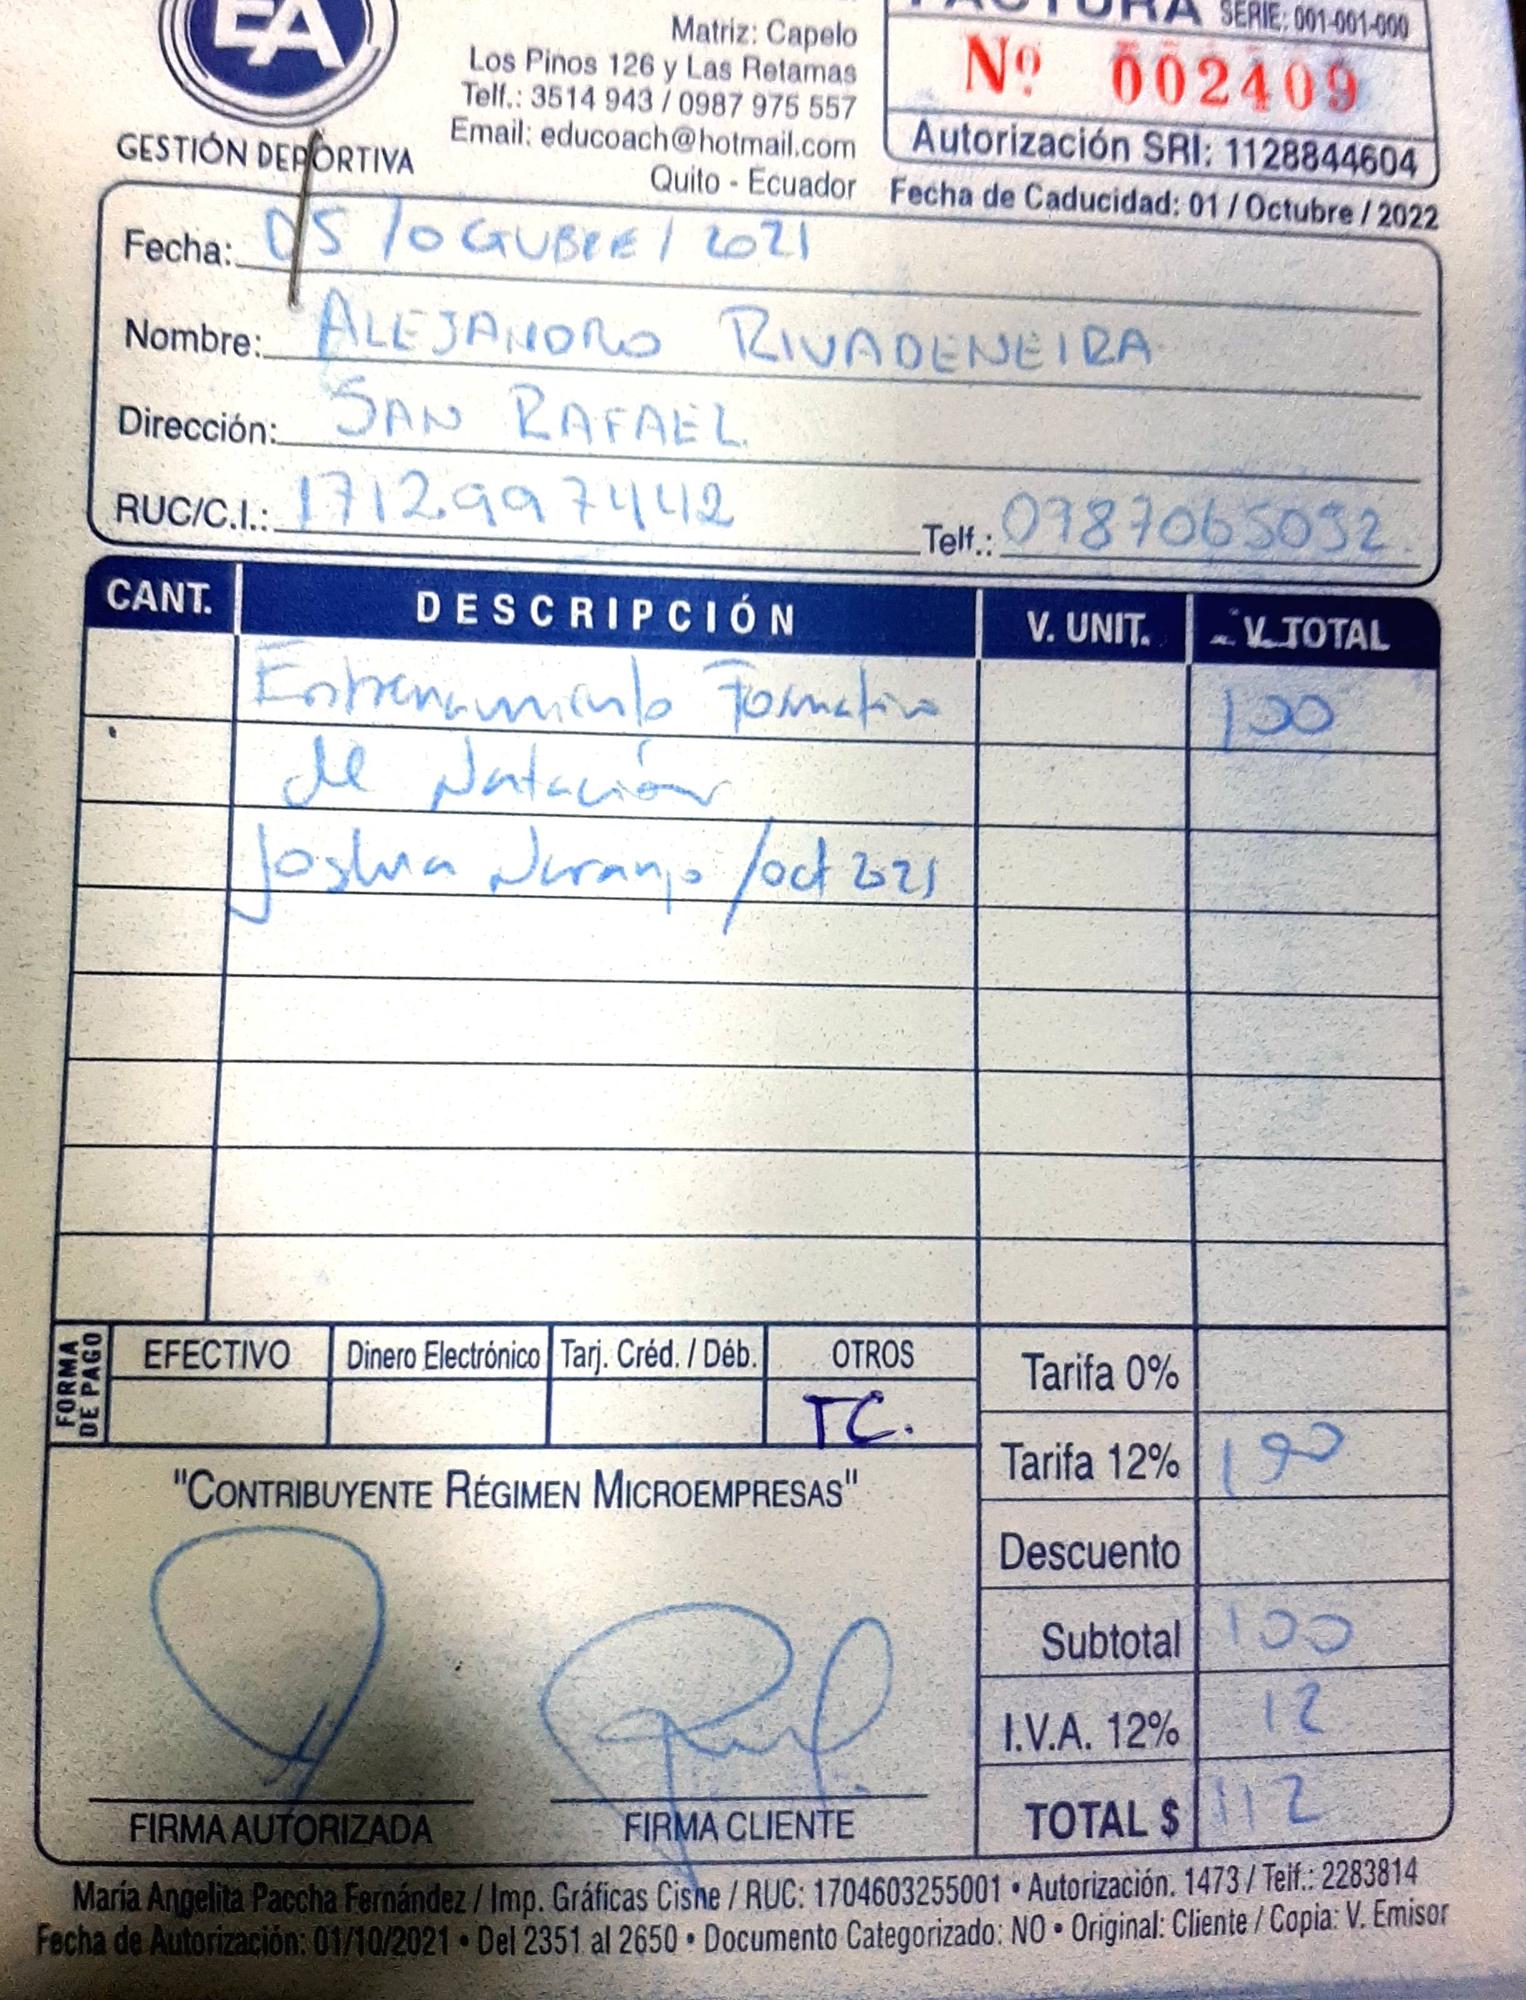 EA
GESTIÓN DEPORTIVA
Matriz: Capelo
Los Pinos 126 y Las Retamas
Telf.: 3514 943 / 0987 975 557
Email: educoach@hotmail.com
Quito - Ecuador
FACTURA SERIE: 001-001-000
Nº 002409
Autorización SRI: 1128844604
Fecha de Caducidad: 01 / Octubre / 2022
Fecha: 05 / OCTUBRE / 2021
Nombre: ALEJANDRO RIVADENEIRA
Dirección: SAN RAFAEL
RUC/C.I.: 1712997442 Telf.: 0987065092
CANT. DESCRIPCIÓN V. UNIT. V. TOTAL
Entrenamiento Formativo 100
de Natación
Joshua Naranjo / oct 2021
FORMA DE PAGO EFECTIVO Dinero Electrónico Tarj. Créd. / Déb. OTROS
TC.
Tarifa 0%
Tarifa 12% 100
Descuento
Subtotal 100
I.V.A. 12% 12
TOTAL $ 112
"CONTRIBUYENTE RÉGIMEN MICROEMPRESAS"
FIRMA AUTORIZADA FIRMA CLIENTE
María Angelita Paccha Fernández / Imp. Gráficas Cisne / RUC: 1704603255001 • Autorización. 1473 / Telf.: 2283814
Fecha de Autorización: 01/10/2021 • Del 2351 al 2650 • Documento Categorizado: NO • Original: Cliente / Copia: V. Emisor